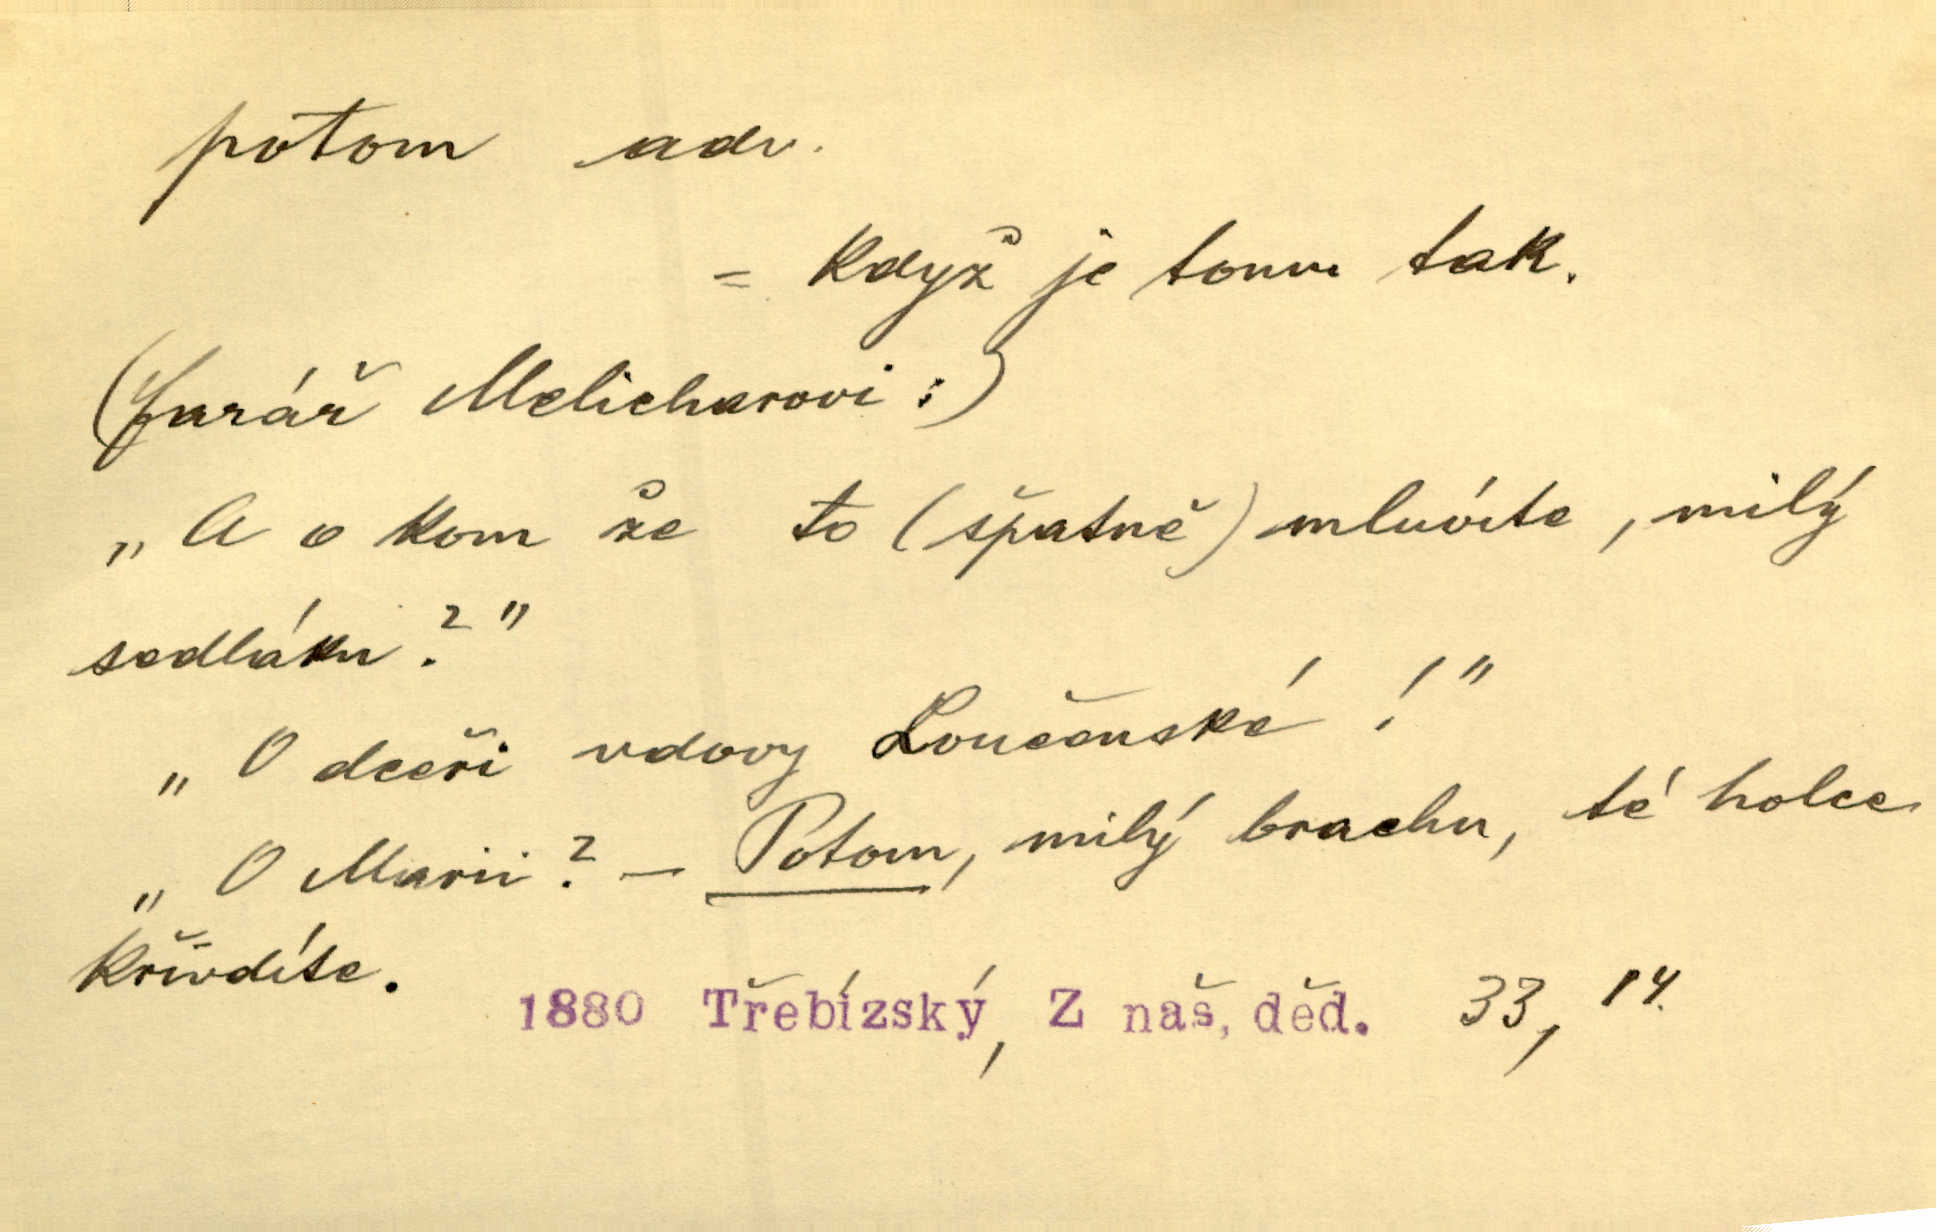 potom adv.
= když je tomu tak.
(farář Melicharovi :)
„A o kom že to (špatně) mluvíte, milý
sedláku?"
„O dceři vdovy Loučenské!"
„O Marii? – Potom, milý brachu, té holce
křivdíte.
1880 Třebízský, Z naš, děd. 33, 14.